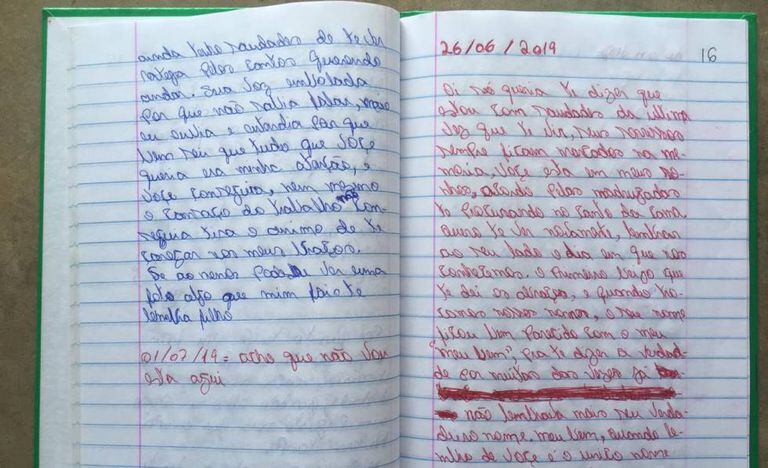 ainda tenho saudades de te ver
pelos cantos querendo
andar. Sua voz embolada
por que não sabia falar, mais
eu ouvia e entendia por que
bem sei que tudo que você
queria era minha atenção, e
você conseguiu, nem mesmo
o cansaço do trabalho não con-
seguia tira o animo de te
nos meus braços.
Se ao menos pode ver uma
foto algo que mim fais te
lembra filho
01/07/19 = acho que não vou
esta aqui
26/06/2019
16
Oi só queria te dizer que
estou com saudades da ultima
vez que te vir, seus
sempre ficam marcados na me-
moria, você esta em meus so-
nhos, acordo pelas madrugadas
te procurando no canto da cama
quero te ver novamente, lembrar
ao seu lado o dia em que nos
conhecemos. o primeiro que
te dei os abraços, e quando tro-
camos nossos nomes, o seu nome
ficou bem parecido com o meu
"meu bem", pra te dizer a verdad-
de por muitas das vezes já
não lembrava mais seu verda-
deiro nome, meu bem, quando le-
mbro de você é o unico nome